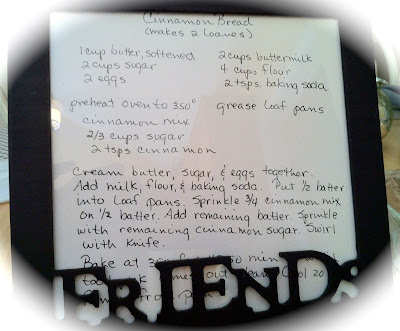 Cinnamon Bread
(makes 2 loaves)
1 cup butter, softened
2 cups sugar
2 eggs
2 cups buttermilk
4 cups flour
2 tsps. baking soda
preheat oven to 350°
grease loaf pans
cinnamon mix
2/3 cups sugar
2 tsps cinnamon
Cream butter, sugar, & eggs together.
Add milk, flour, & baking soda. Put 1/2 batter
into loaf pans. Sprinkle 3/4 cinnamon mix
on 1/2 batter. Add remaining batter. Sprinkle
with remaining cinnamon sugar. Swirl
with knife.
Bake at
out 20
from
FRIENDS